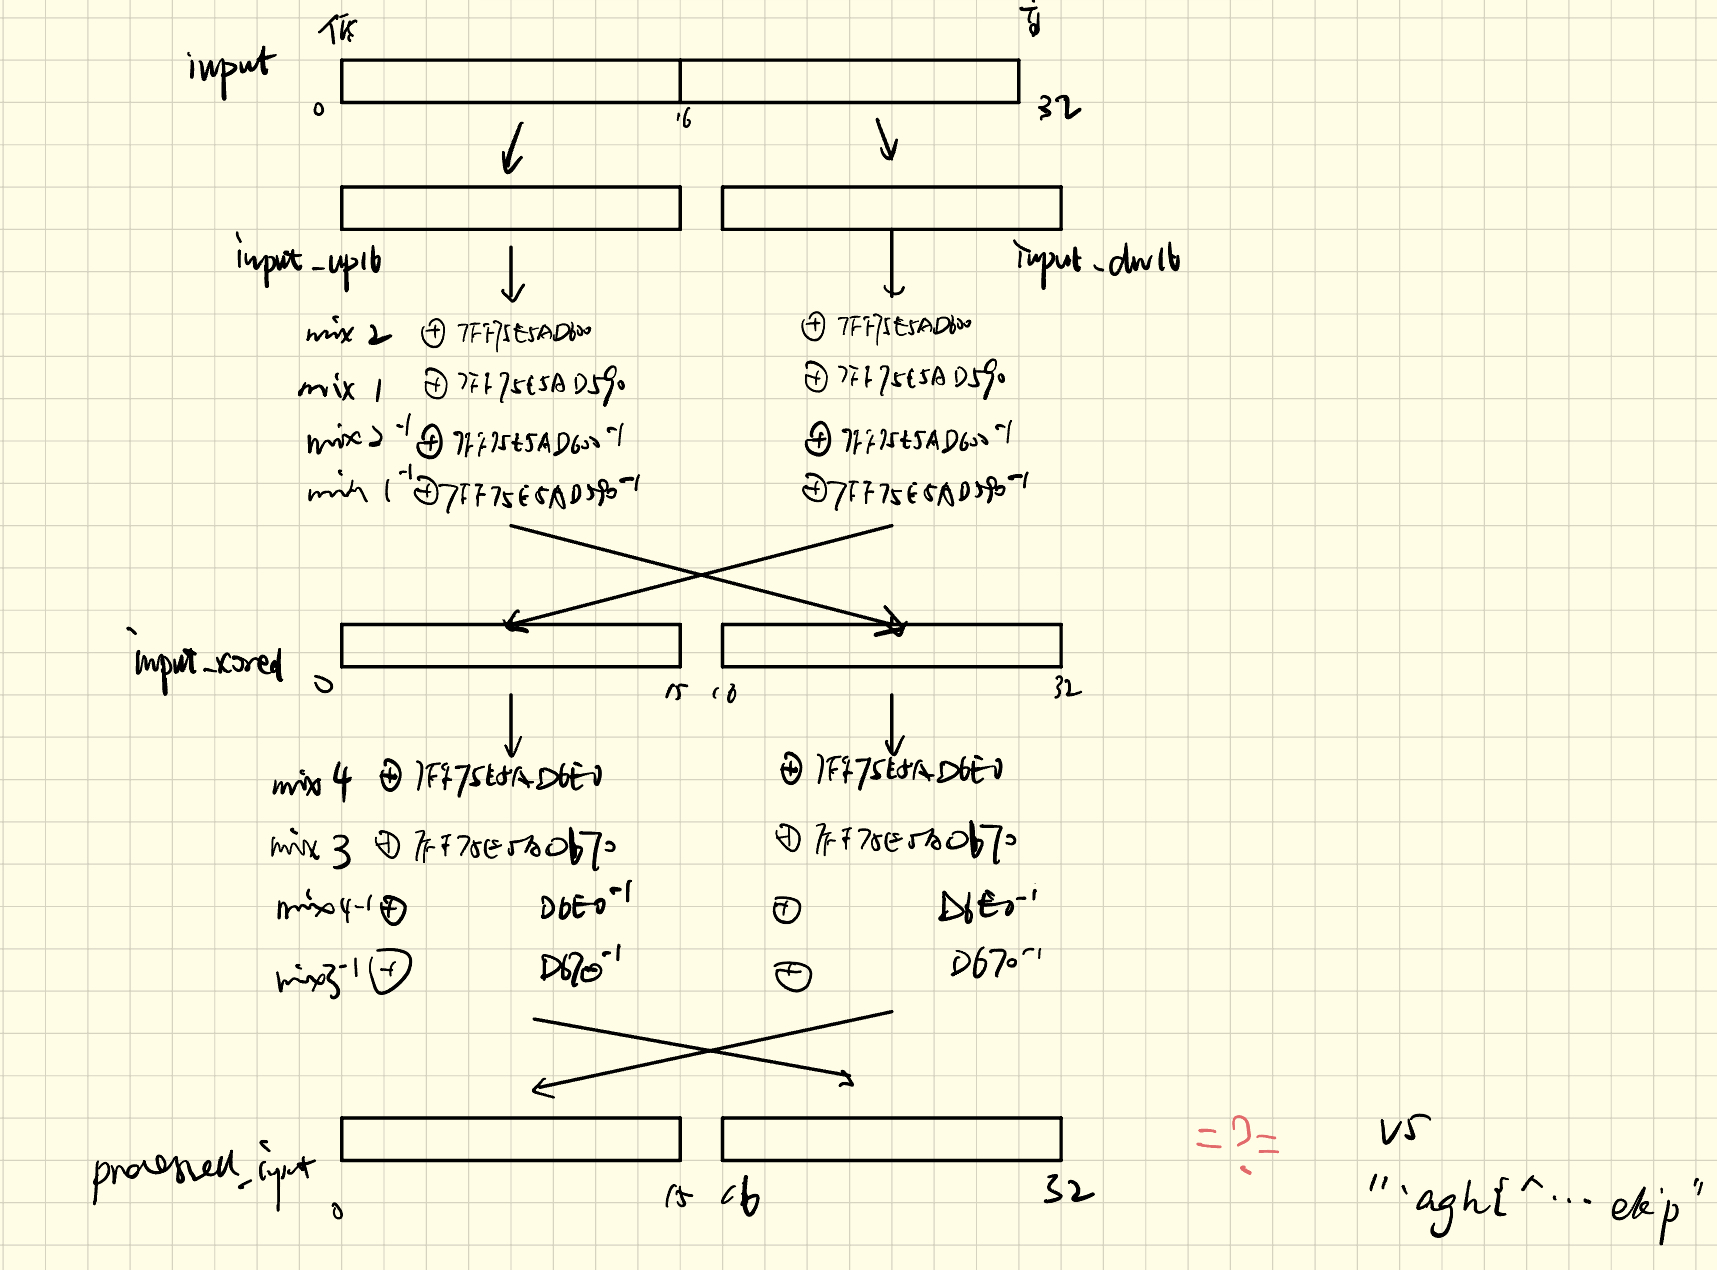 低
input
0
16
32
input_up16
input_dw16
mix 2 ⊕ 7FF75E5AD600
⊕ 7FF75E5AD600
mix 1 ⊕ 7FF75E5AD590
⊕ 7FF75E5AD590
mix 2⁻¹ ⊕ 7FF75E5AD600⁻¹
⊕ 7FF75E5AD600⁻¹
mix 1⁻¹ ⊕ 7FF75E5AD590⁻¹
⊕ 7FF75E5AD590⁻¹
input_xored
0
15
32
mix 4 ⊕ 7FF75E5AD6E0
⊕ 7FF75E5AD6E0
mix 3 ⊕ 7FF75E5AD670
⊕ 7FF75E5AD670
mix4-1 ⊕ D6E0⁻¹
⊕ D6E0⁻¹
mix3⁻¹ ⊕ D670⁻¹
⊕ D670⁻¹
processed_input
0
15
16
32
=?=
VS
"`agh{^... ekip"